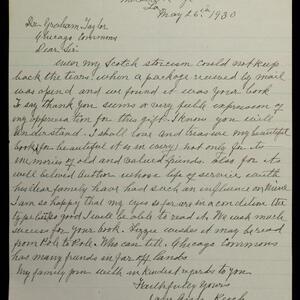 La.
May 26th 1930
Dr. Graham Taylor
Chicago Commons
Dear Sir
Even my Scotch stoicism could not keep
back the tears when a package received by mail
was opend and we found it was your book
To say thank you seems a very futile expression of
my appreciation for this gift. I know you will
understand. I shall love and treasure my beautiful
book (for beautiful it is in every) not only for its
memories of old and valued friends. Also for its
well beloved Author whose life of service with
his dear family have had such an influence on mine
I am so happy that my eyes so far are in a condition the
type being good I will be able to read it. We wish much
success for your book. Lizzie wishes it may be read
from Pole to Pole. Who can tell. Chicago Commons
has many friends in far off lands
My family join with in kindest regards to you
Faithfully Yours